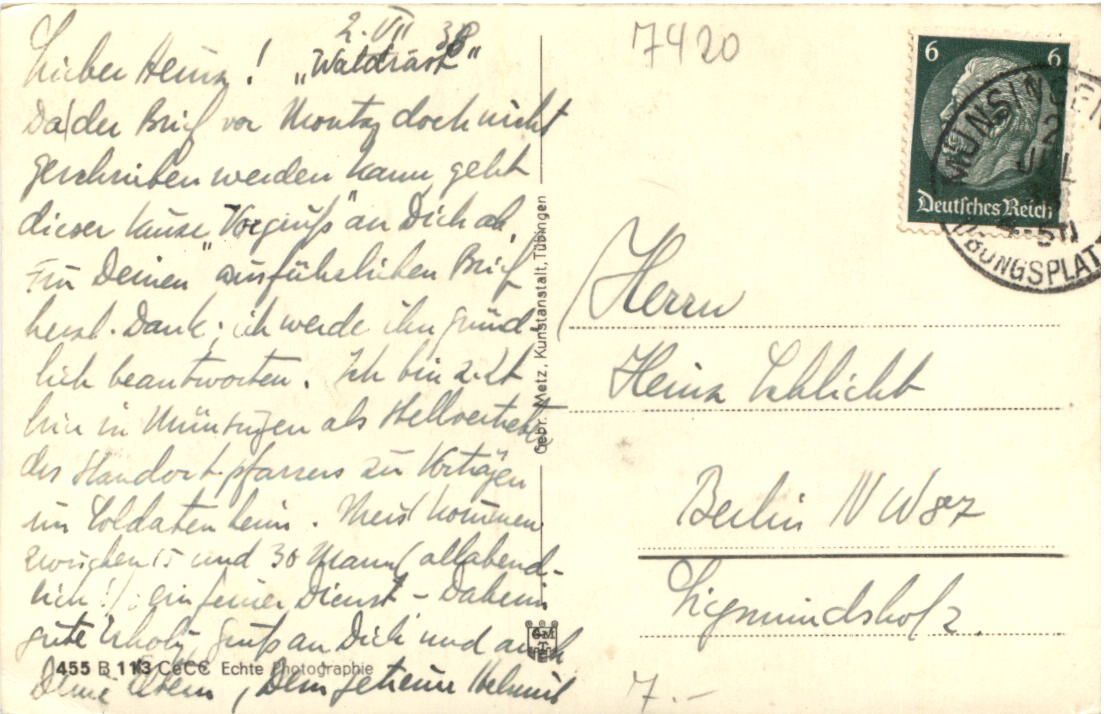 2. VII 38
"Waldrast"
Lieber Heinz!
Da der Brief vor Montag doch nicht
geschrieben werden kann, geht
dieser kurze "Vorgruß" an Dich ab.
Für Deinen ausführlichen Brief
herzl. Dank; ich werde ihn gründ-
lich beantworten. Ich bin z. Zt
hier in Münsingen als Stellvertreter
des Standortpfarrers zu Vorträgen
im Soldatenheim. Meist kommen
zwischen 15 und 30 Mann (allabend-
lich!): ein feiner Dienst – Daheim
gute Gruß an Dich und auch
Deine Eltern, Dein getreuer Helmut
455 B 113 CeCC Echte Photographie
Gebr. Metz, Kunstanstalt, Tübingen
GM
T
7420
6 6
Deutsches Reich
MÜNSINGEN
2
ÜBUNGSPLATZ
Herrn
Heinz Schlicht
Berlin NW87
Sigmundshof 2.
7.–